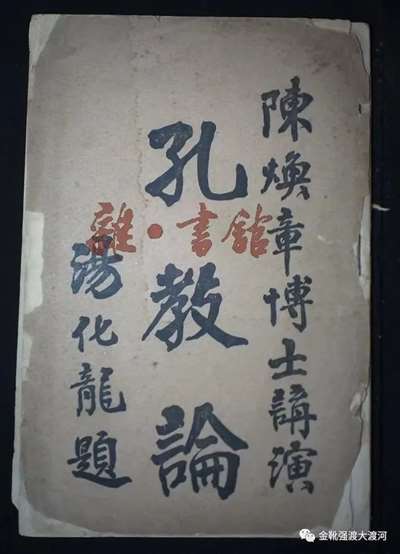 陳煥章博士講演
孔教論
湯化龍題
雜·書舘
金靴强渡大渡河